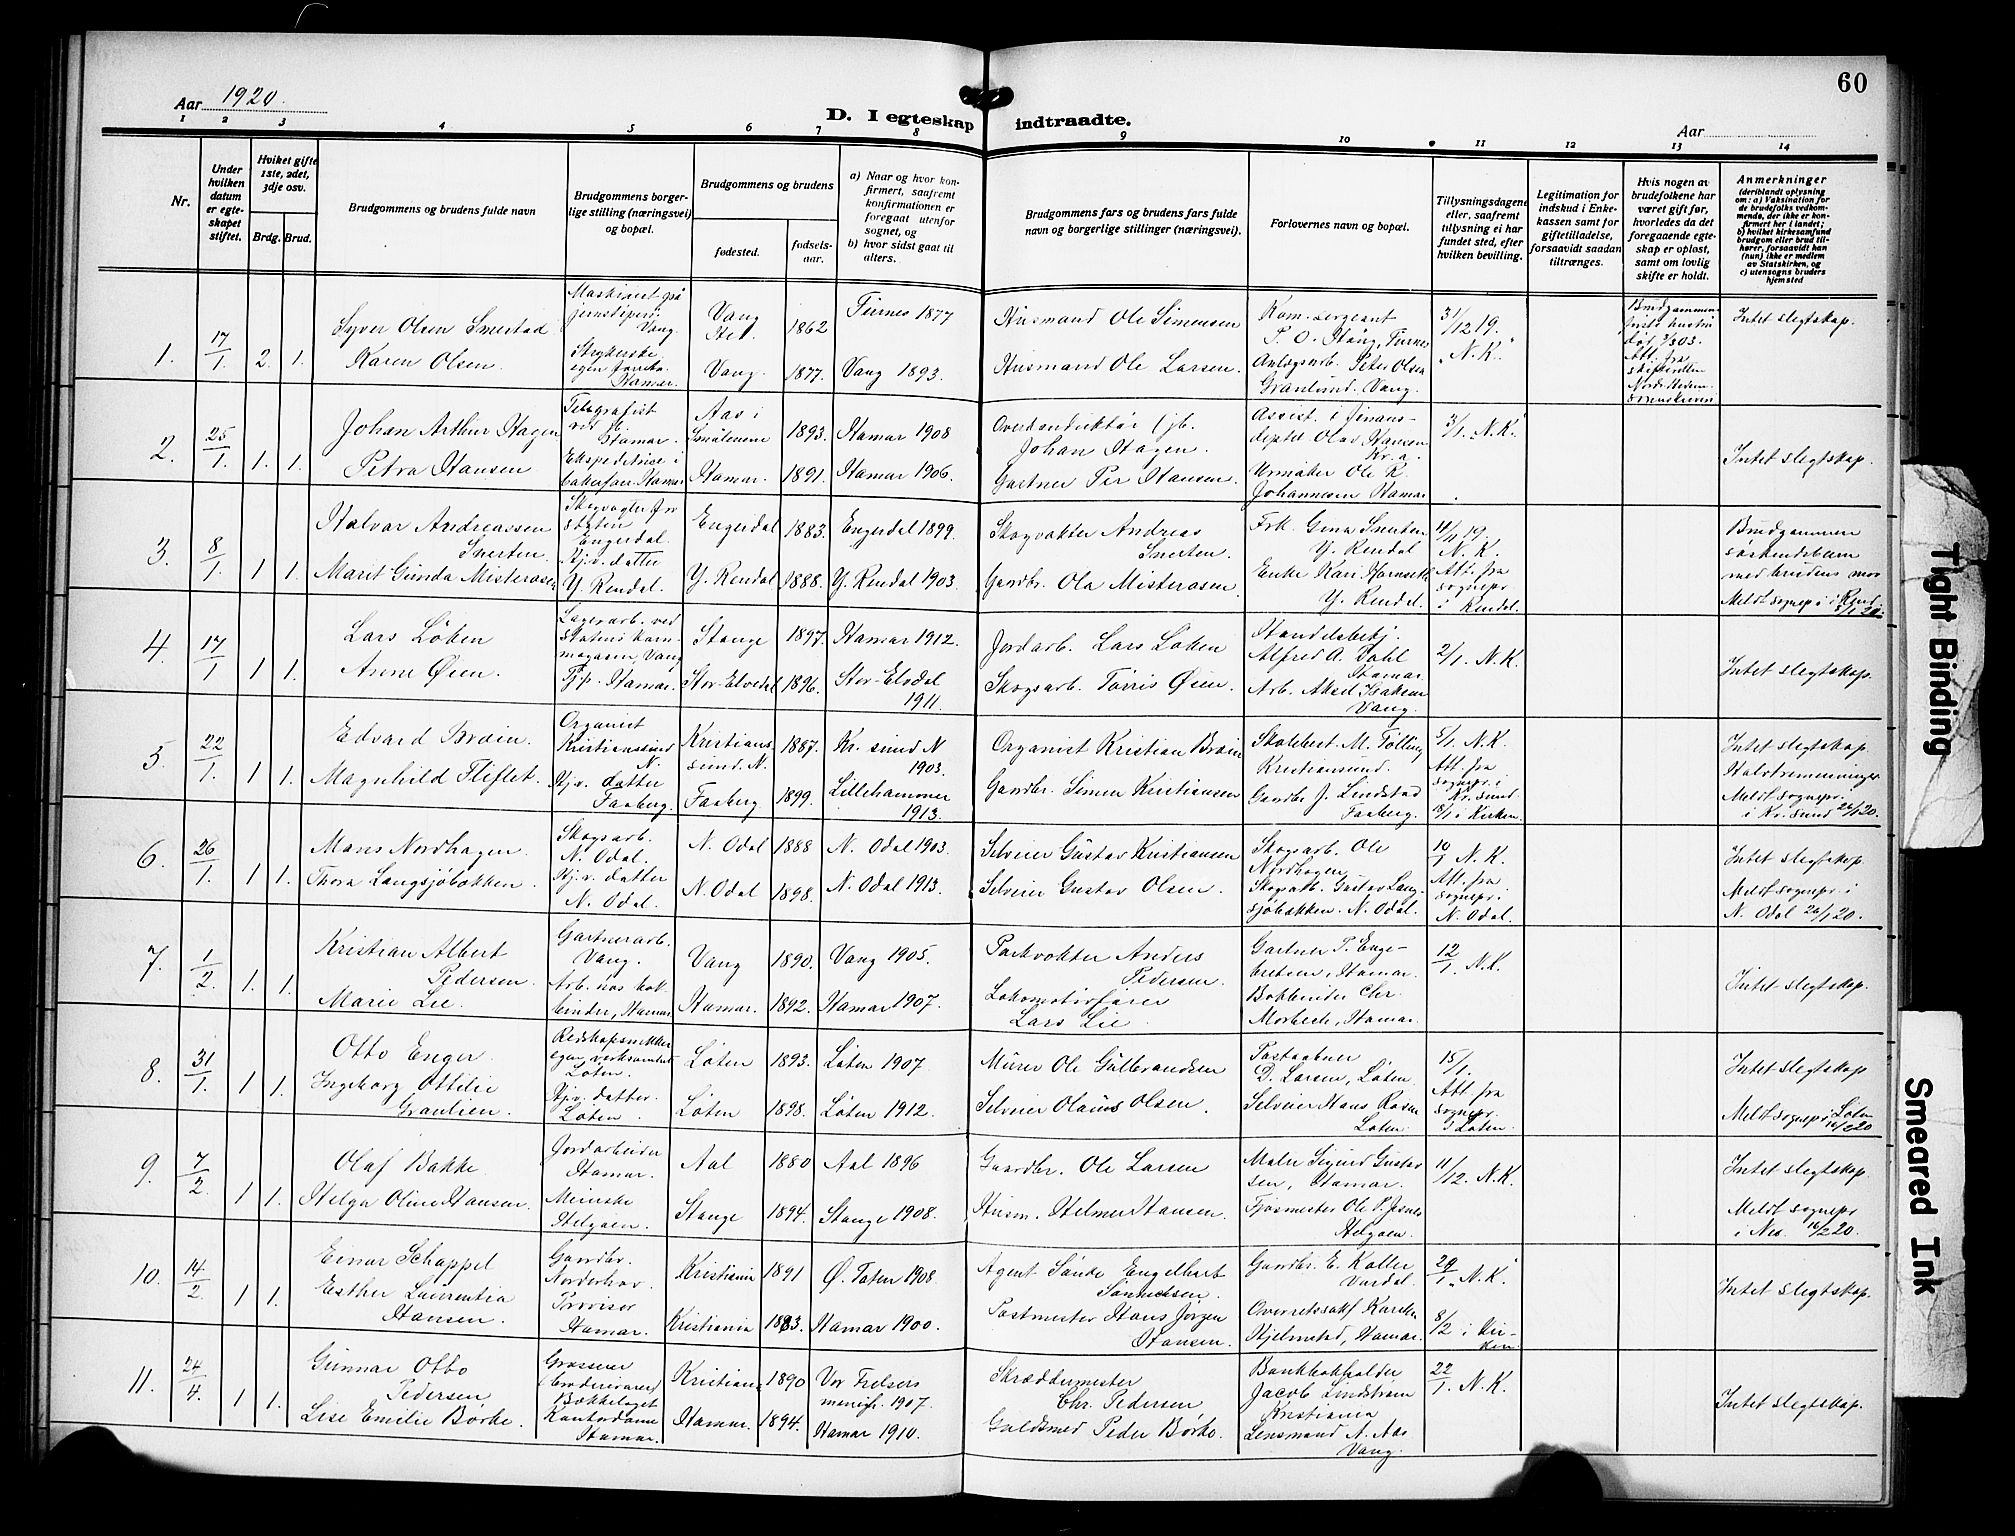 60
Aar 1920.
D. I egteskap indtraadte.
Aar
1 2 3 4 5 6 7 8 9 10 11 12 13 14
Nr.
Under hvilken datum er egteskapet stiftet.
Hviket gifte 1ste, 2det, 3dje osv.
Brdg. Brud.
Brudgommens og brudens fulde navn
Brudgommens borgerlige stilling (næringsvei) og bopæl.
Brudgommens og brudens
fødested.
fødselsaar.
a) Naar og hvor konfirmert, saafremt konfirmationen er foregaat utenfor sognet, og
b) hvor sidst gaat til alters.
Brudgommens fars og brudens fars fulde navn og borgerlige stillinger (næringsvei).
Forlovernes navn og bopæl.
Tillysningsdagene eller, saafremt tillysning ei har fundet sted, efter hvilken bevilling.
Legitimation for indskud i Enkekassen samt for giftetilladelse, forsaavidt saadan tiltrænges.
Hvis nogen av brudefolkene har været gift før, hvorledes da det foregaaende egteskap er opløst, samt om lovlig skifte er holdt.
Anmerkninger
(deriblandt oplysning om: a) Vaksination for de brudefolks vedkommende, der ikke er konfirmert her i landet; b) hvilket kirkesamfund brudgom eller brud tilhører, forsaavidt han (hun) ikke er medlem av Statskirken, og c) utensogns bruders hjemsted
1. 17/1 2. 1.
Syver Olsen Smestad
Karen Olsen.
Maskinist på
Vang.
Strykerske
Hamar.
Vang Hed. 1862
Vang. 1877.
Furnes 1877
Vang 1893.
Husmand Ole Simensen
Husmand Ole Larsen.
Kom. sergeant
Furnes
Anlægsarb. Peter Olsen
Granlund. Vang.
31/12 19.
"N.K."
Brudgommens
første hustru
Att. fra
skifteretten
Intet slegtskap.
2. 25/1. 1. 1.
Johan Arthur Hagen
Petra Hansen
Telegrafist
ved jb.
Hamar.
Ekspeditrice i
Hamar
Aas i
Smålenene 1893.
Hamar. 1891.
Hamar 1908
Hamar 1906.
Overkonduktør i jb.
Johan Hagen.
Gartner Per Hansen.
Assist. i Finans-
deptet Olav Hansen
Kr.a.
Urmaker Ole K.
Johannesen Hamar
3/1. N.K.
Intet slegtskap.
3. 8/1. 1 1.
Halvar Andreassen
Snerten.
Marit Gunda Misterosen
Skogvagter for
staten
Engerdal.
Hj.v. datter
Y. Rendal.
Engerdal 1883.
Y. Rendal 1888.
Engerdal 1899.
Y. Rendal 1903.
Skogvokter Andreas
Snerten.
Gaardbr. Ola Misterosen.
Frk. Gina Snerten
Y. Rendal
Enke Kari
Y. Rendal.
N.K.
Att. fra
sognepr
i Rendal.
Brudgommen
søskendebarn
med brudens mor
Meldt sognepr i Rend.
4. 17/1 1 1.
Lars Løken
Anne Øien.
Lagerarb. ved
statens korn-
magasin, Vang
Tjp. Hamar.
Stange 1897.
Stor-Elvedal 1896.
Hamar 1912.
Stor-Elvdal
1911.
Jordarb. Lars Løken
Skogsarb. Torris Øien.
Handelsbetj.
Alfred A. Dahl
Hamar.
Arb. Aksel Isaksen
Vang.
2/1. N.K.
Intet slegtskap.
5. 22/1. 1 1.
Edvard Bræin.
Magnhild Fliflet.
Organist
Kristianssund
N.
Hj.v. datter
Faaberg.
Kristians-
sund. N. 1887.
Faaberg 1899.
Kr. sund N
1903.
Lillehammer
1913.
Organist Kristian Bræin
Gaardbr. Simen Kristiansen
Skolebest. M. Tølling
Kristiansund.
Gaardbr J. Lindstad
Faaberg.
5/1. N.K.
Att. fra
sognepr. i
Kr. sund.
18/1 i Kirken.
Intet slegtskap
Halvtremenninger
Meldt sognepr.
i Kr. sund 26/1 20.
6. 26/1. 1 1.
Mons Nordhagen.
Thora Langsjøbækken.
Skogsarb.
N. Odal.
Hj.v. datter
N. Odal.
N. Odal 1888
N. Odal 1898.
N. Odal 1903.
N. Odal 1913.
Selveier Gustav Kristiansen
Selveier Gustav Olsen.
Skogsarb. Ole
Nordhagen
Skogsarb. Gustav Lang-
sjøbækken. N. Odal.
10/1 N.K.
Att. fra
sognepr. i
N. Odal.
Intet slegtskap.
Meldt sognepr. i
N. Odal 26/1 20.
7. 1/2. 1. 1.
Kristian Albert
Pedersen.
Marie Lie.
Gartnerarb.
Vang.
Arb. hos bok-
binder, Hamar
Vang 1890.
Hamar. 1892.
Vang 1905.
Hamar 1907.
Parkvokter Anders
Pedersen.
Lokomotivfører
Lars Lie.
Gartner P. Enge-
bretsen, Hamar.
Bokbinder Chr.
Hamar.
12/1. N.K.
Intet slegtskap.
8. 31/1. 1 1.
Otto Enger.
Ingeborg Ottilie
Granlien.
Redskapssnekker
egen verksamhet
Løten.
Hj.v. datter.
Løten.
Løten 1893.
Løten 1898.
Løten 1907.
Løten 1912.
Murer Ole Gulbrandsen
Selveier Olaus Olsen.
Postaabner
D. Larsen, Løten
Selveier Hans Rosen
Løten.
15/1.
Att fra
sognepr.
i Løten.
Intet slegtskap
Meldt sognepr i Løten
9. 7/2. 1 1.
Olaf Bakke
Helga Oline Hansen.
Jordarbeider
Hamar.
Meierske
Helgøen.
Aal 1880
Stange 1894.
Aal 1896
Stange 1908.
Gaardbr. Ole Larsen
Husm. Helmer Hansen.
Maler Sigurd Gustav-
sen, Hamar.
Fjøsmester Ole P.
Helgøen.
11/12. N.K.
Intet slegtskap.
Meldt sognepr
i Nes. 16/2 20.
10. 14/2. 1 1.
Einar Schappel
Esther Laurentia
Hansen.
Gaardbr.
Norderhov.
Provisor
Hamar.
Kristiania 1891
Kristiania 1883.
Ø. Toten 1908.
Hamar 1900.
Agent Sünde Engelhart
Postmester Hans Jørgen
Hansen.
Gaardbr. E. Koller
Vardal.
Overretssakf
Hjelmstad, Hamar.
29/1 "N.K."
8/2 i Kir-
ken.
Intet slegtskap.
11. 24/4. 1 1.
Gunnar Otto
Pedersen
Lise Emilie Børke.
Grosserer
Bækkelaget
Kontordame
Hamar.
Kristiania 1890
Hamar. 1894.
Vor Frelsers
menigh. 1907.
Hamar 1910.
Skræddermester
Chr. Pedersen
Guldsmed Peder Børke.
Bankbokholder
Jacob Lindstrøm
Kristiania
Lensmand N. Aas
Vang.
22/1. N.K.
Intet slegtskap.
Tight Binding
Smeared Ink